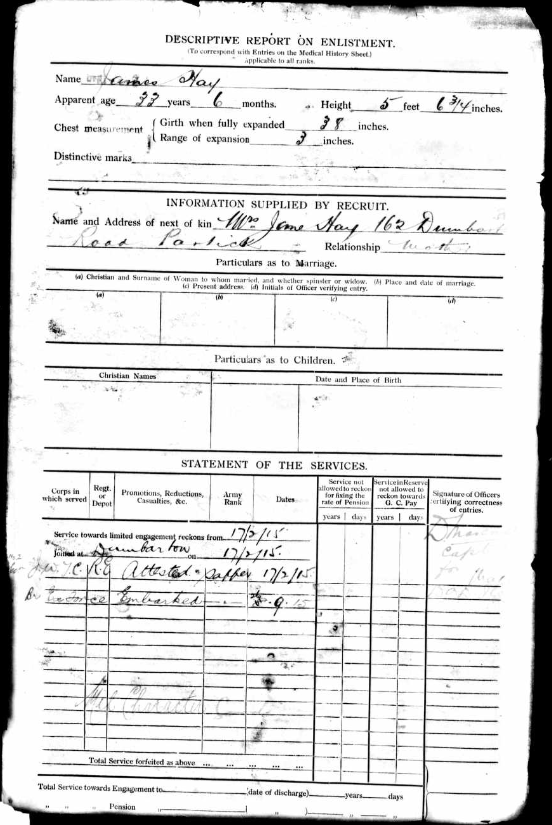 DESCRIPTIVE REPORT ON ENLISTMENT.
(To correspond with Entries on the Medical History Sheet.)
applicable to all ranks.
Name James Hay
Apparent age 33 years 6 months. Height 5 feet 6 3/4 inches.
Chest measurement { Girth when fully expanded 38 inches.
Range of expansion 3 inches.
Distinctive marks
INFORMATION SUPPLIED BY RECRUIT.
Name and Address of next of kin Mrs Jane Hay 162 Dumbarton
Road Partick Relationship Mother
Particulars as to Marriage.
(a) Christian and Surname of Woman to whom married, and whether spinster or widow. (b) Place and date of marriage.
(c) Present address. (d) Initials of Officer verifying entry.
(a) (b) (c) (d)
Particulars as to Children.
Christian Names Date and Place of Birth
STATEMENT OF THE SERVICES.
Corps in which served
Regt. or Depot
Promotions, Reductions, Casualties, &c.
Army Rank
Dates
Service not allowed to reckon for fixing the rate of Pension
Service in Reserve not allowed to reckon towards G. C. Pay
Signature of Officers certifying correctness of entries.
years days years days
Service towards limited engagement reckons from 17/2/15
Joined at Dumbarton on 17/2/15.
R.E Attested Sapper 17/2/15
Embarked 9.15
Character
Total Service forfeited as above ... ... ... ...
Total Service towards Engagement to (date of discharge) years days
" " Pension ( " ) " "